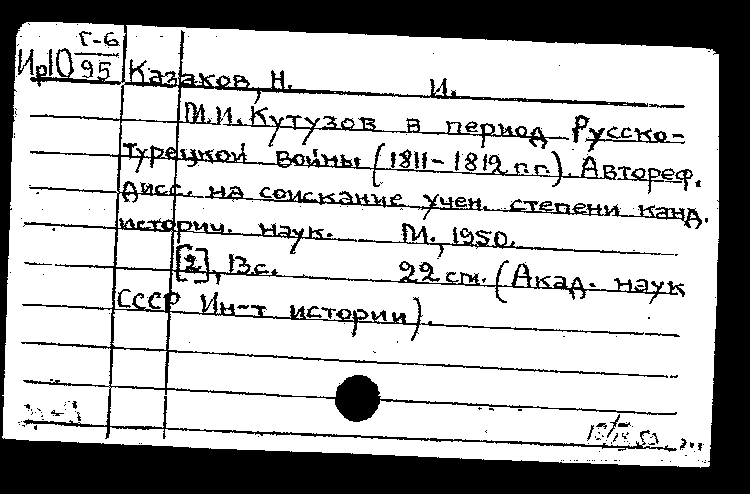 Г-6
Ир10 95 Казаков, Н. И.
М.И. Кутузов в период Русско-
турецкой войны (1811-1812 г.г.). Автореф.
дисс. на соискание учен. степени канд.
историч. наук. М., 1950.
[2], 13 с. 22 см. (Акад. наук
СССР Ин-т истории).